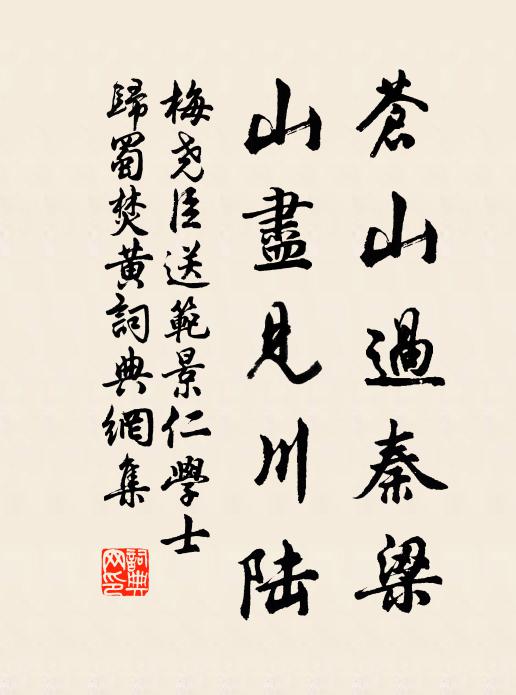 蒼山過秦梁
山盡見川陆
梅堯臣送範景仁學士
歸蜀焚黃詞典網集
詞典网印